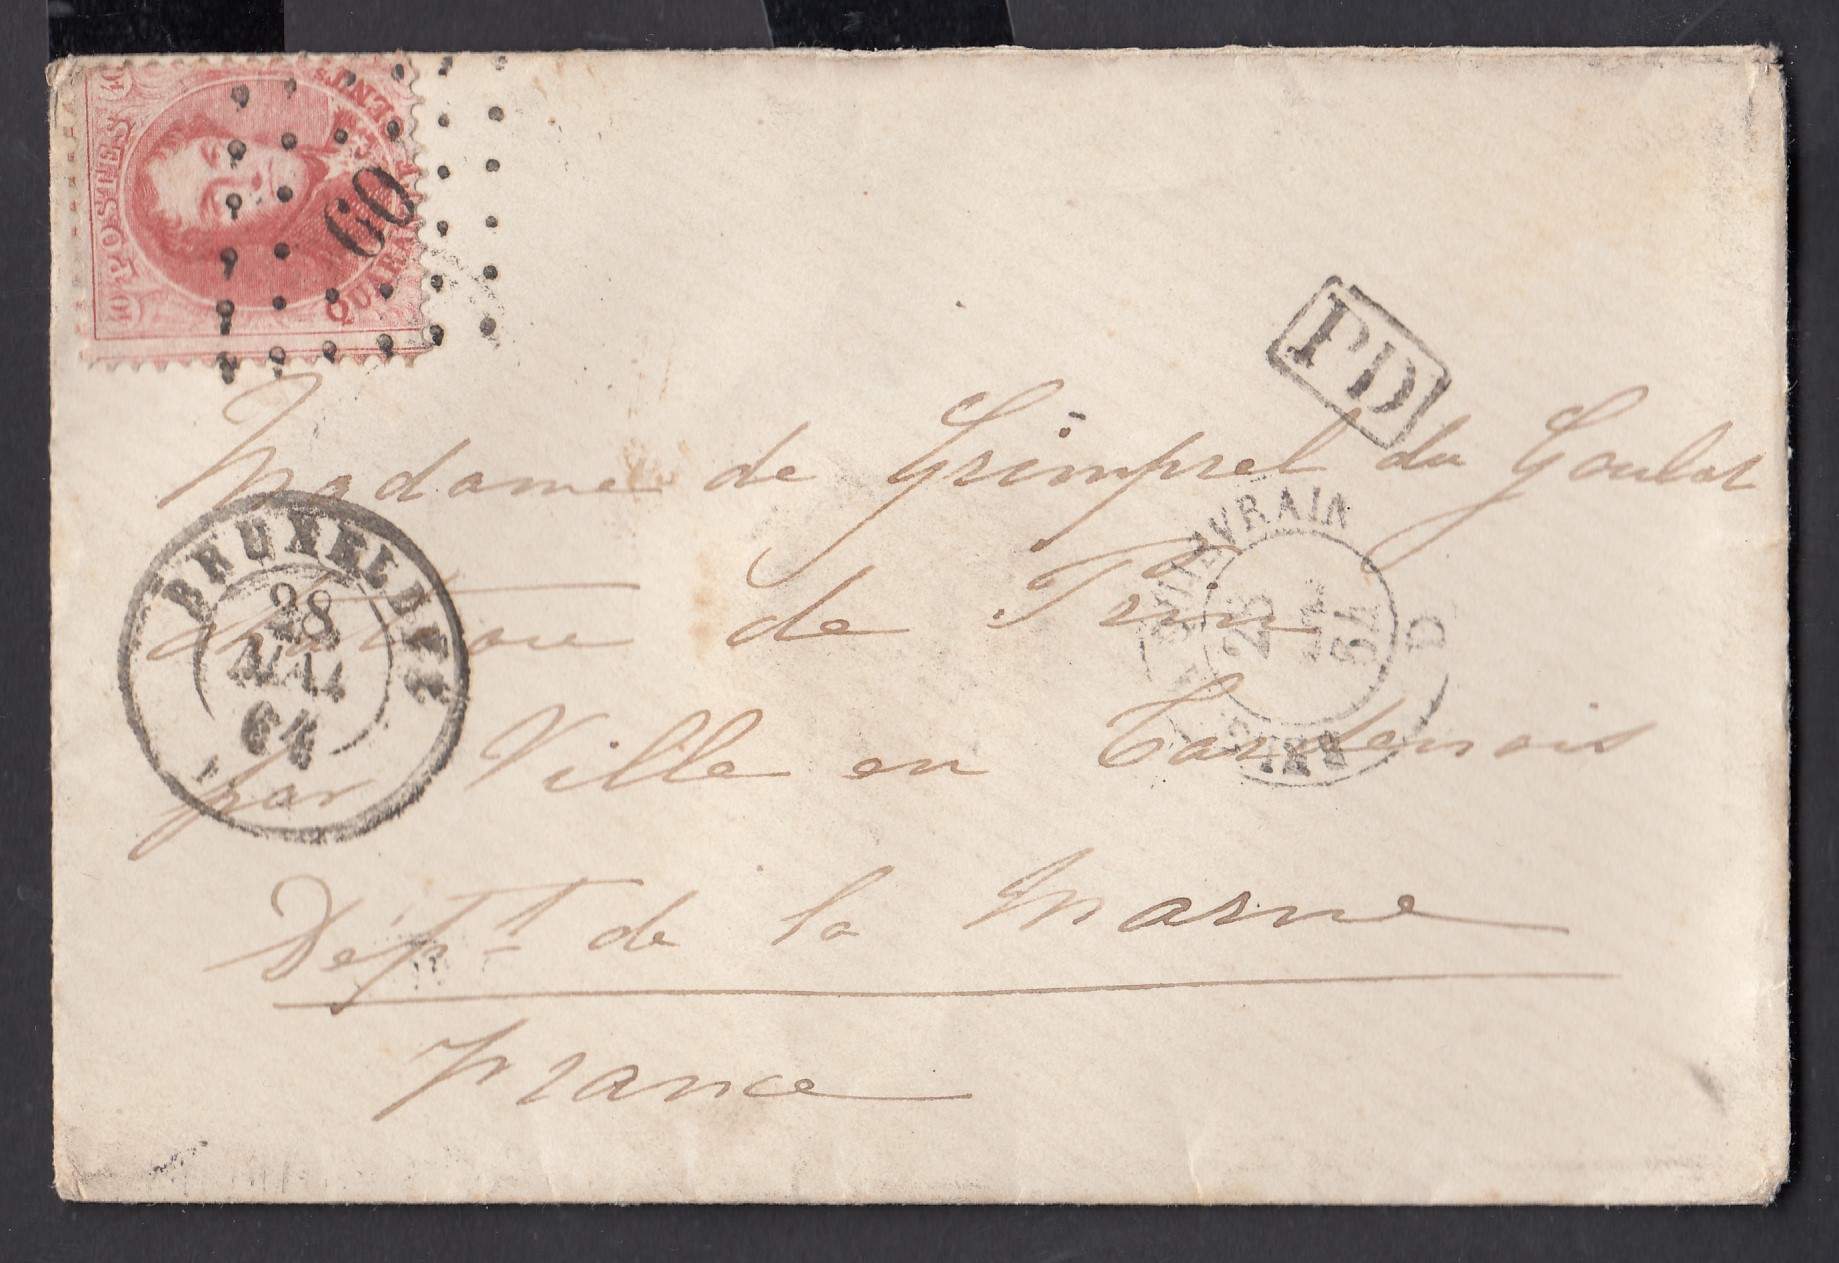 POSTES
40
40
QUARANTE CENTMES
60
PD
Madame de Grimprel du Goulot
chateau de Prin
par Ville en Tardenois
Dépt. de la Marne
France
BRUXELLES
28
MAI
64
QUIEVRAIN
28
64